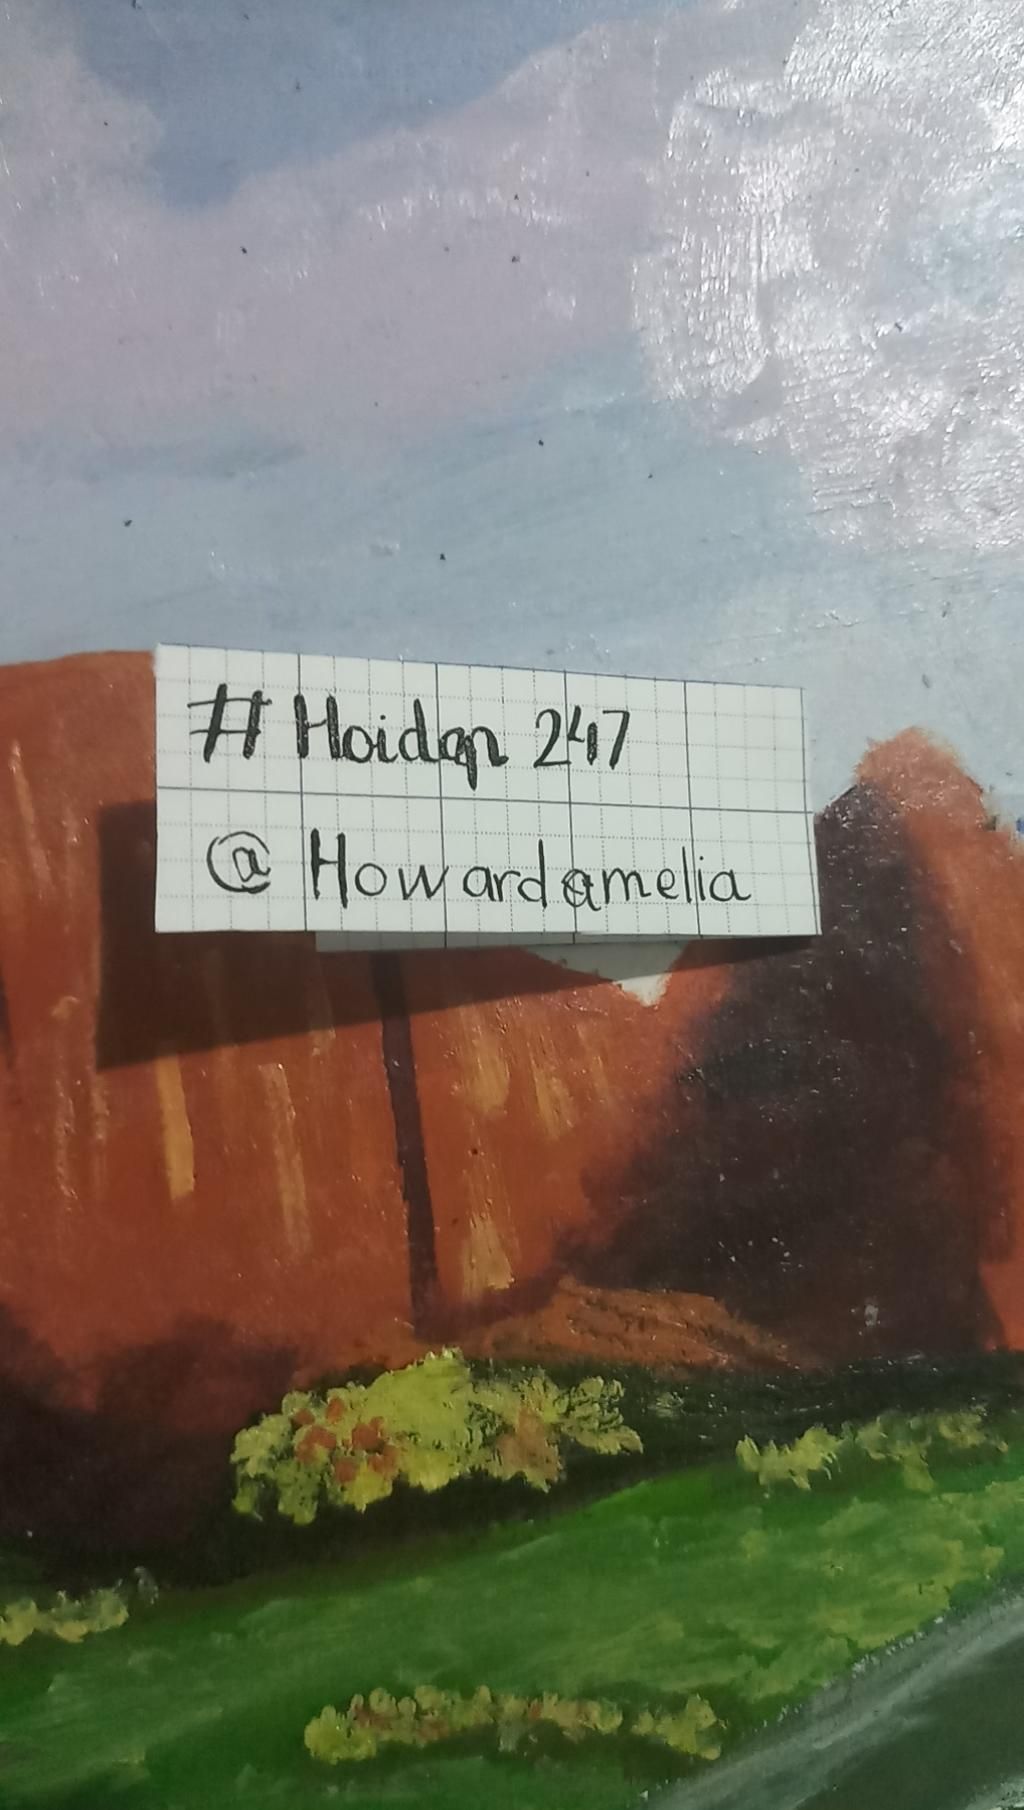 #Hoidap 247
@Howardamelia